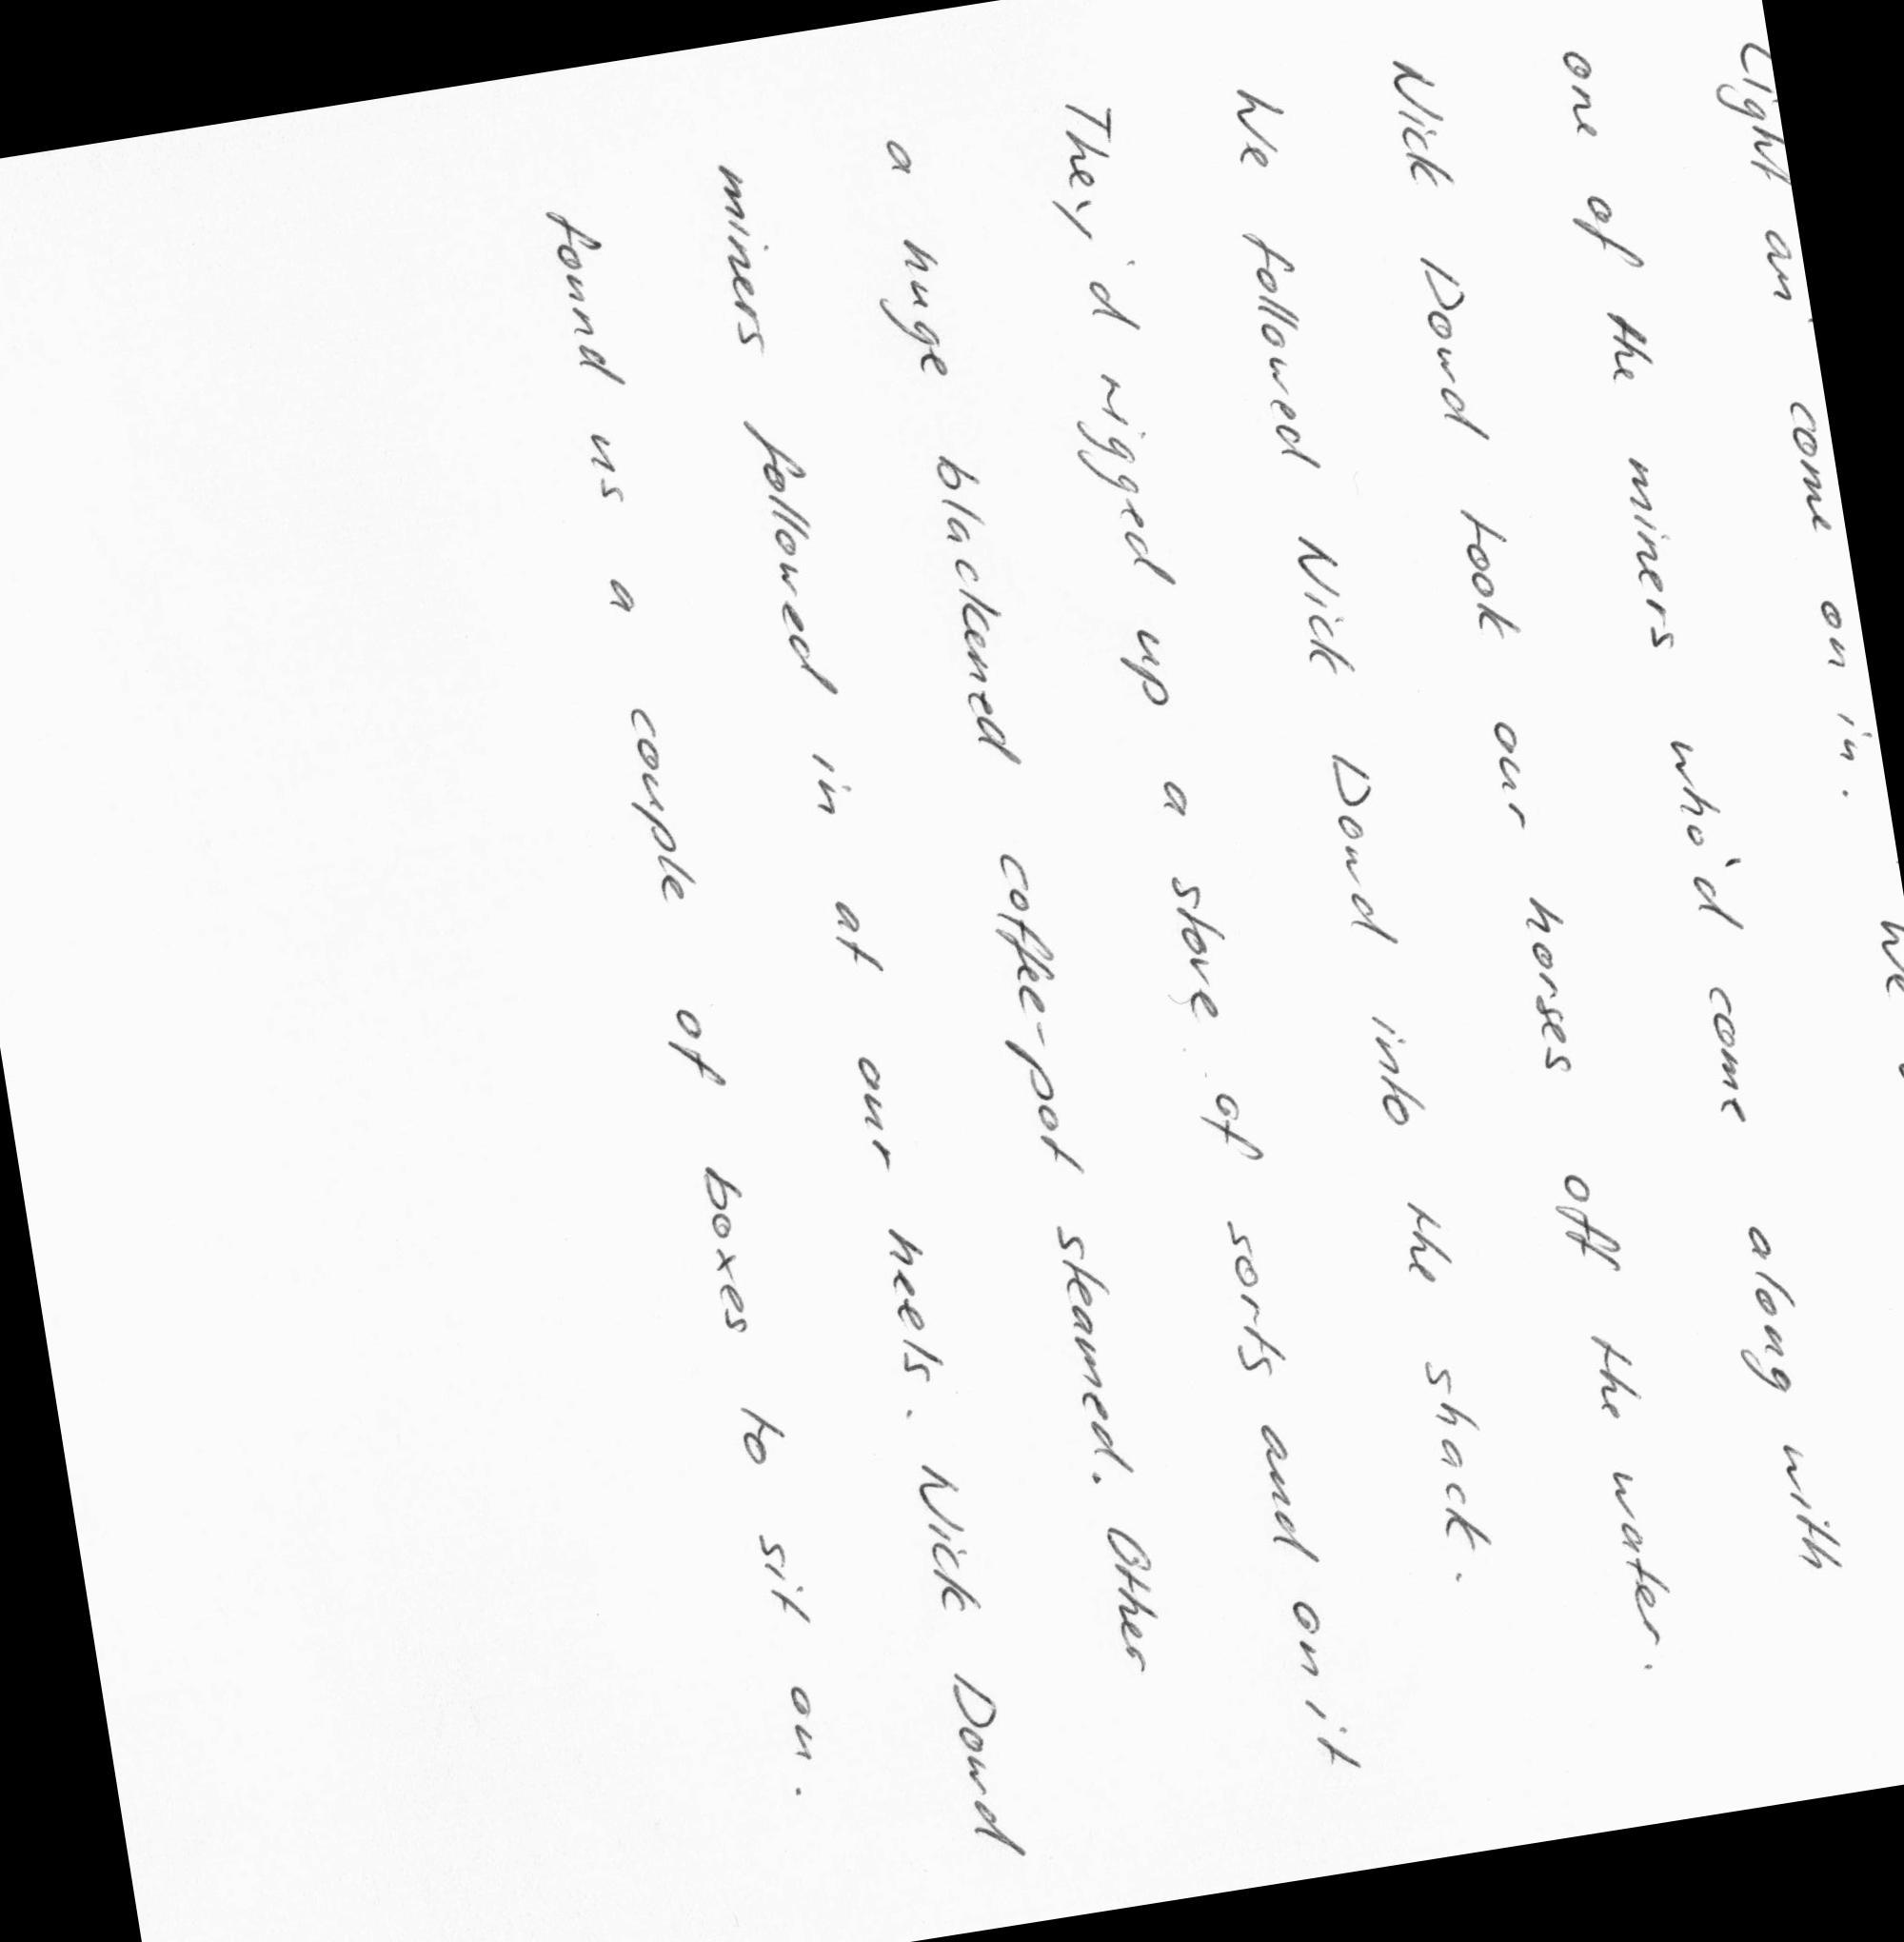 Light an' come on in. We
one of the miners who'd come along with
Nick Dowd took our horses off the water.
We followed Nick Dowd into the shack.
They'd rigged up a stove of sorts and on it
a huge blackened coffee-pot steamed. Other
miners followed in at our heels. Nick Dowd
found us a couple of boxes to sit on.